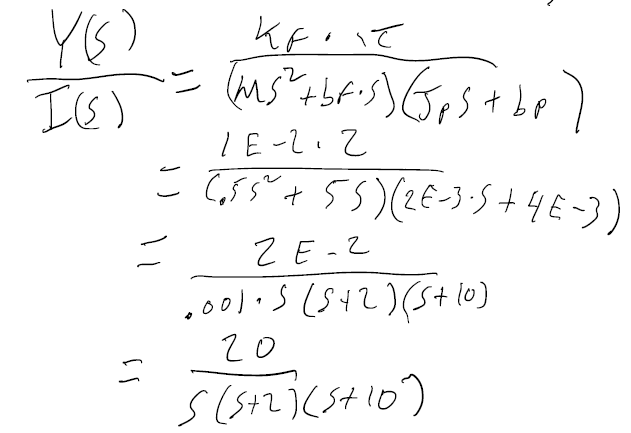 Y(s)/I(s) = KF · τ / (Ms²+bf·s)(Jps+bp)
= 1E-2 · 2 / (.5s² + 5s)(2E-3·s + 4E-3)
= 2E-2 / .001·s(s+2)(s+10)
= 20 / s(s+2)(s+10)